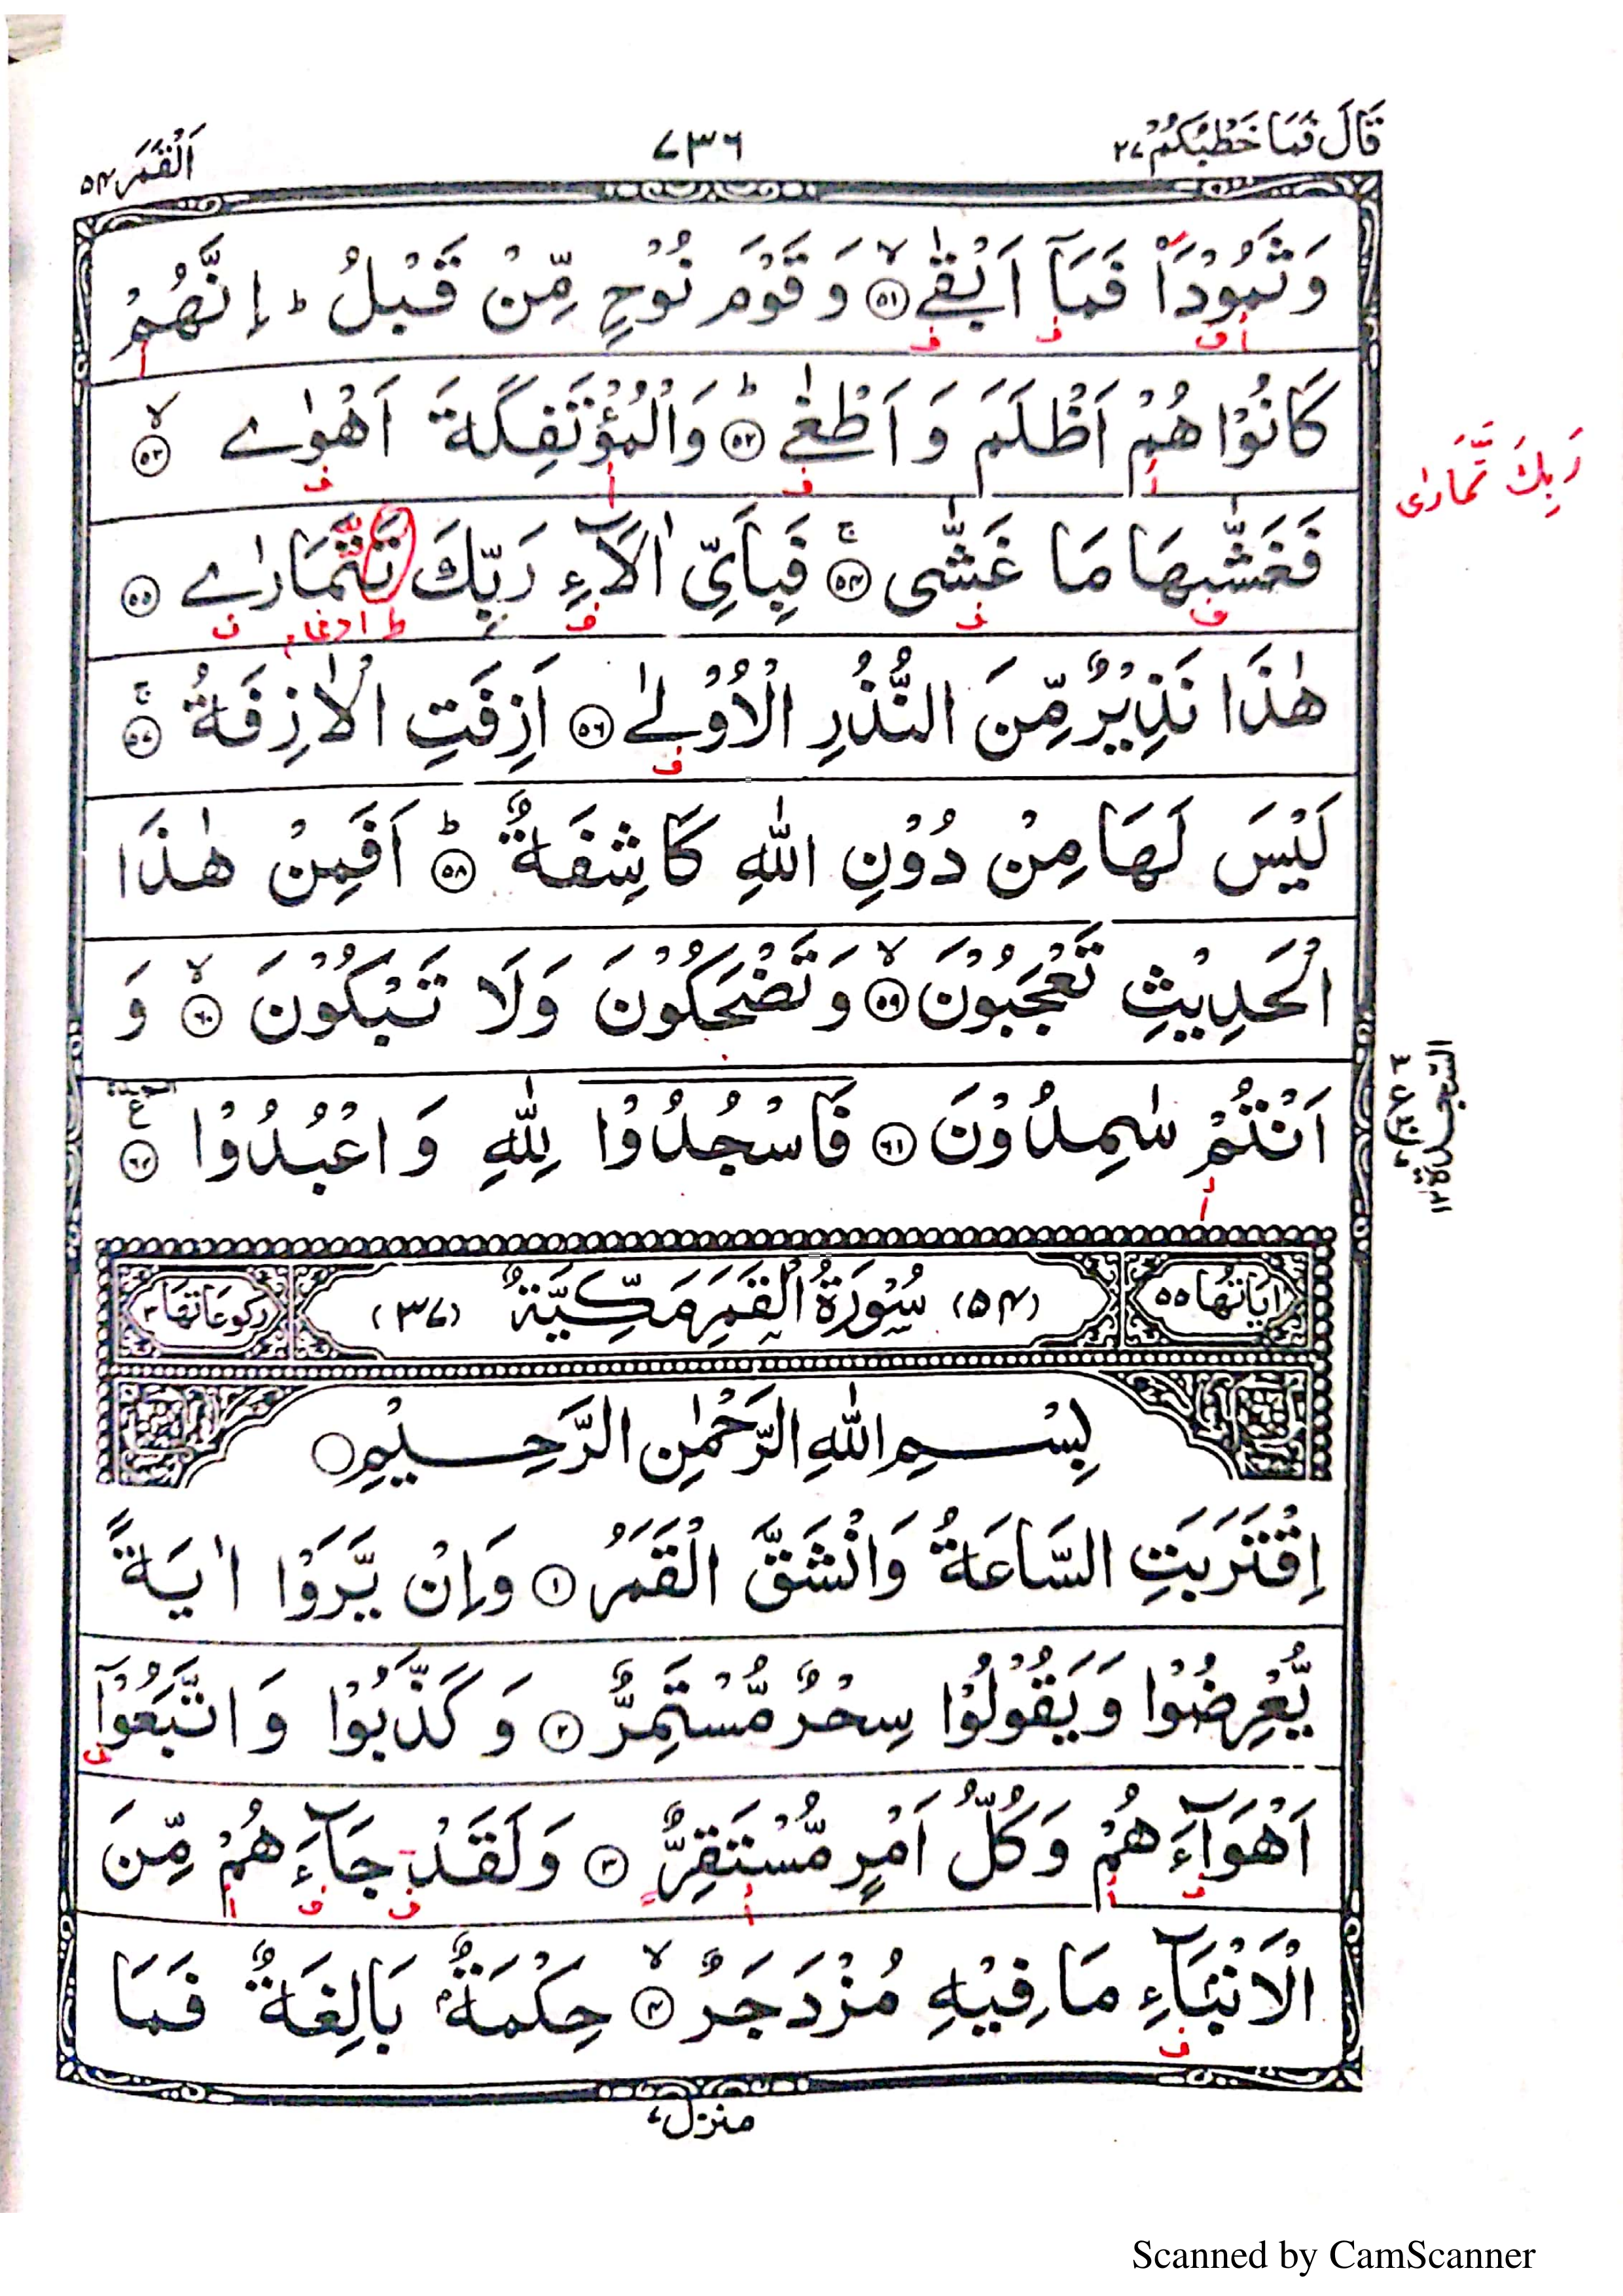 قَالَ فَمَا خَطْبُكُمْ ۲۷
۷۳۶
اَلْقَمَر ۵۴
وَثَمُوْدَا۟ فَمَاۤ اَبْقٰی ۙ﴿۵۱﴾ وَ قَوْمَ نُوْحٍ مِّنْ قَبْلُ ؕ اِنَّهُمْ
كَانُوْا هُمْ اَظْلَمَ وَ اَطْغٰی ؕ﴿۵۲﴾ وَالْمُؤْتَفِكَةَ اَهْوٰی ۙ﴿۵۳﴾
فَغَشّٰىهَا مَا غَشّٰی ۚ﴿۵۴﴾ فَبِاَیِّ اٰلَآءِ رَبِّكَ تَتَمَارٰی ﴿۵۵﴾
رَبِكَ تَّمَارٰى
هٰذَا نَذِیْرٌ مِّنَ النُّذُرِ الْاُوْلٰی ﴿۵۶﴾ اَزِفَتِ الْاٰزِفَةُ ۚ﴿۵۷﴾
لَیْسَ لَهَا مِنْ دُوْنِ اللّٰهِ كَاشِفَةٌ ؕ﴿۵۸﴾ اَفَمِنْ هٰذَا
الْحَدِیْثِ تَعْجَبُوْنَ ۙ﴿۵۹﴾ وَ تَضْحَكُوْنَ وَلَا تَبْكُوْنَ ۙ﴿۶۰﴾ وَ
اَنْتُمْ سٰمِدُوْنَ ﴿۶۱﴾ فَاسْجُدُوْا لِلّٰهِ وَ اعْبُدُوْا ﴿۶۲﴾
السجدة ۱۲
اٰیَاتُهَا ۵۵
(۵۴) سُوْرَةُ الْقَمَرِ مَكِّیَّةٌ (۳۷)
رکوعاتها ۳
بِسْمِ اللّٰهِ الرَّحْمٰنِ الرَّحِیْمِ
اِقْتَرَبَتِ السَّاعَةُ وَانْشَقَّ الْقَمَرُ ﴿۱﴾ وَاِنْ یَّرَوْا اٰیَةً
یُّعْرِضُوْا وَ یَقُوْلُوْا سِحْرٌ مُّسْتَمِرٌّ ﴿۲﴾ وَ كَذَّبُوْا وَ اتَّبَعُوْۤا
اَهْوَآءَهُمْ وَ كُلُّ اَمْرٍ مُّسْتَقِرٌّ ﴿۳﴾ وَلَقَدْ جَآءَهُمْ مِّنَ
الْاَنْۢبَآءِ مَا فِیْهِ مُزْدَجَرٌ ۙ﴿۴﴾ حِكْمَةٌۢ بَالِغَةٌ فَمَا
منزل ۷
Scanned by CamScanner